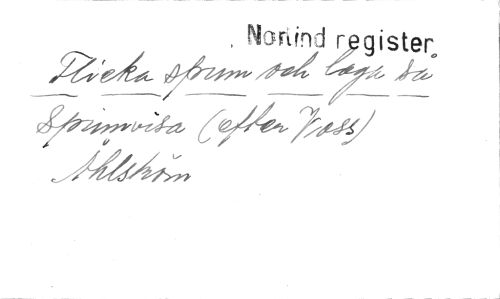 Norlind register
Flicka spinn och laga så
Spinnvisa (efter Voss)
Åhlström